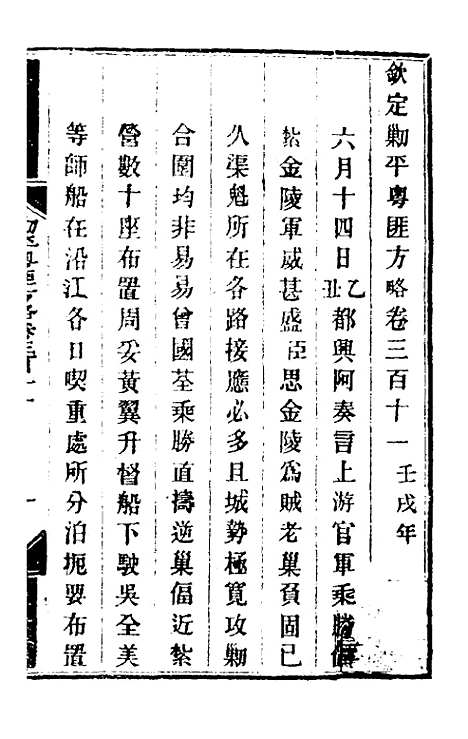 欽定勦平粵匪方略卷三百十一 壬戌年
六月十四日乙丑都興阿奏言上游官軍乘勝偪
紮金陵軍威甚盛臣思金陵為賊老巢負固已
久渠魁所在各路接應必多且城勢極寬攻勦
合圍均非易易曾國荃乘勝直擣逆巢偪近紮
營數十座布置周妥黃翼升督船下駛吳全美
等師船在沿江各口喫重處所分泊扼要布置